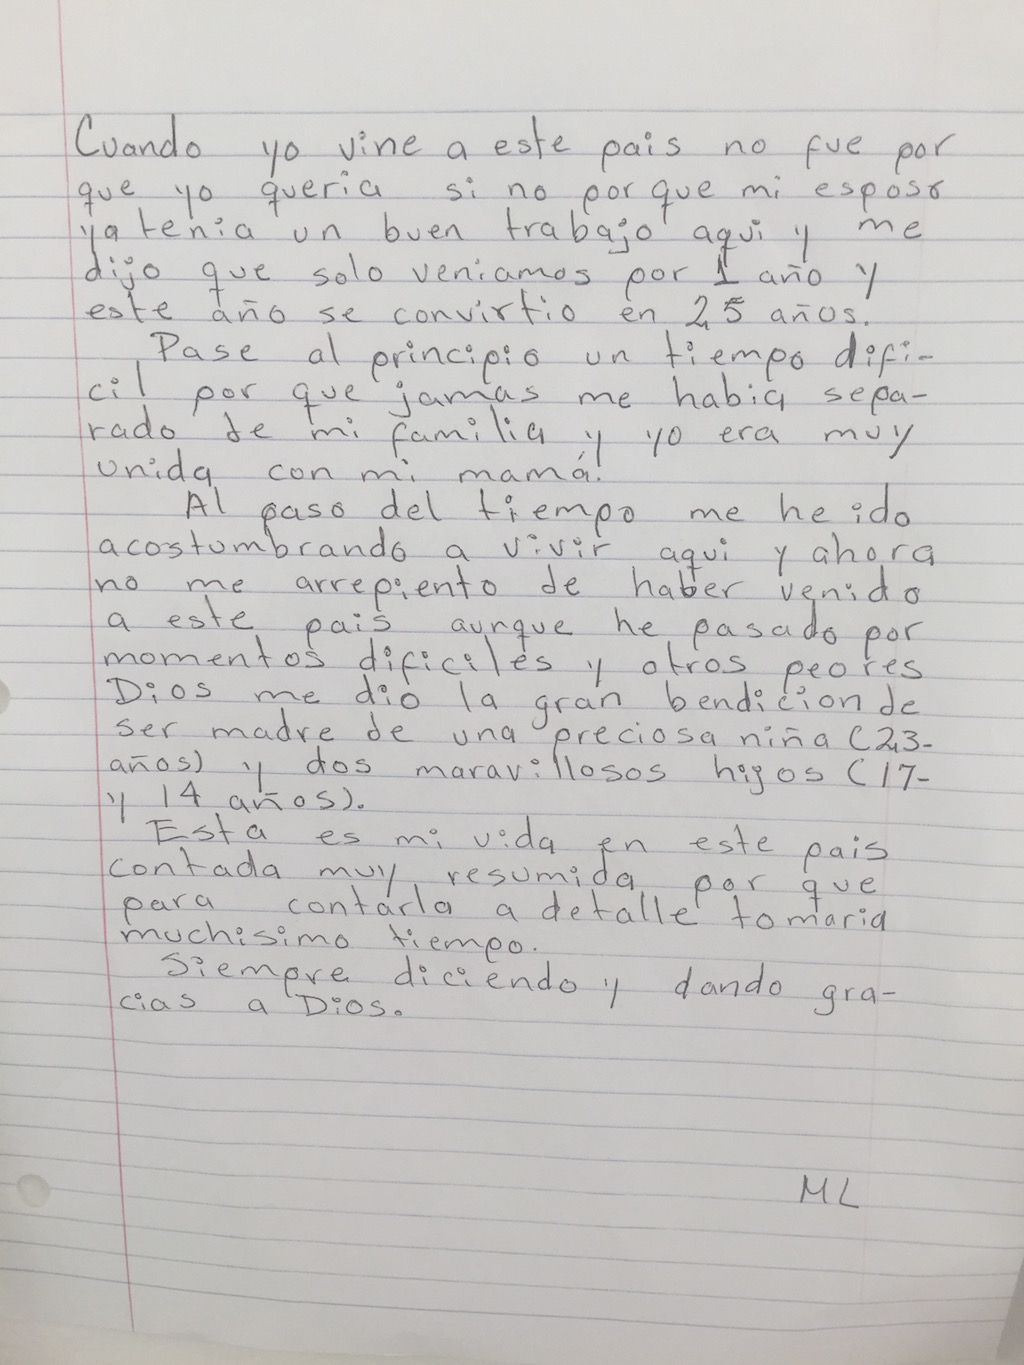 Cuando yo vine a este pais no fue por
que yo queria si no por que mi esposo
ya tenia un buen trabajo aqui y me
dijo que solo veniamos por 1 año y
este año se convirtio en 25 años.
Pase al principio un tiempo difi-
cil por que jamas me habia sepa-
rado de mi familia y yo era muy
unida con mi mamá.
Al paso del tiempo me he ido
acostumbrando a vivir aqui y ahora
no me arrepiento de haber venido
a este pais aunque he pasado por
momentos dificiles y otros peores
Dios me dio la gran bendicion de
ser madre de una preciosa niña (23-
años) y dos maravillosos hijos (17-
y 14 años).
Esta es mi vida en este pais
contada muy resumida por que
para contarla a detalle tomaria
muchisimo tiempo.
Siempre diciendo y dando gra-
cias a Dios.
ML